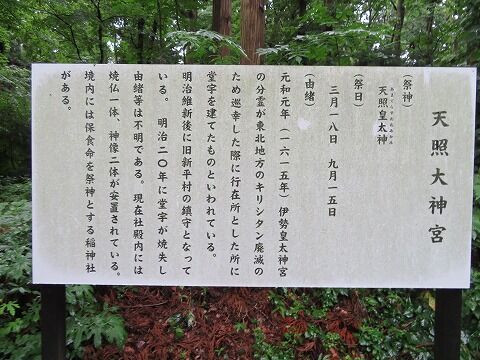 天照大神宮
(祭神)
天照皇太神
(祭日)
三月一八日 九月一五日
(由緒)
元和元年(一六一五年)伊勢皇太神宮
の分霊が東北地方のキリシタン廃滅の
ため巡幸した際に行在所とした所に
堂宇を建てたものといわれている。
明治維新後に旧新平村の鎮守となって
いる。 明治二〇年に堂宇が焼失し
由緒等は不明である。現在社殿内には
焼仏一体、神像二体が安置されている。
境内には保食命を祭神とする稲神社
がある。